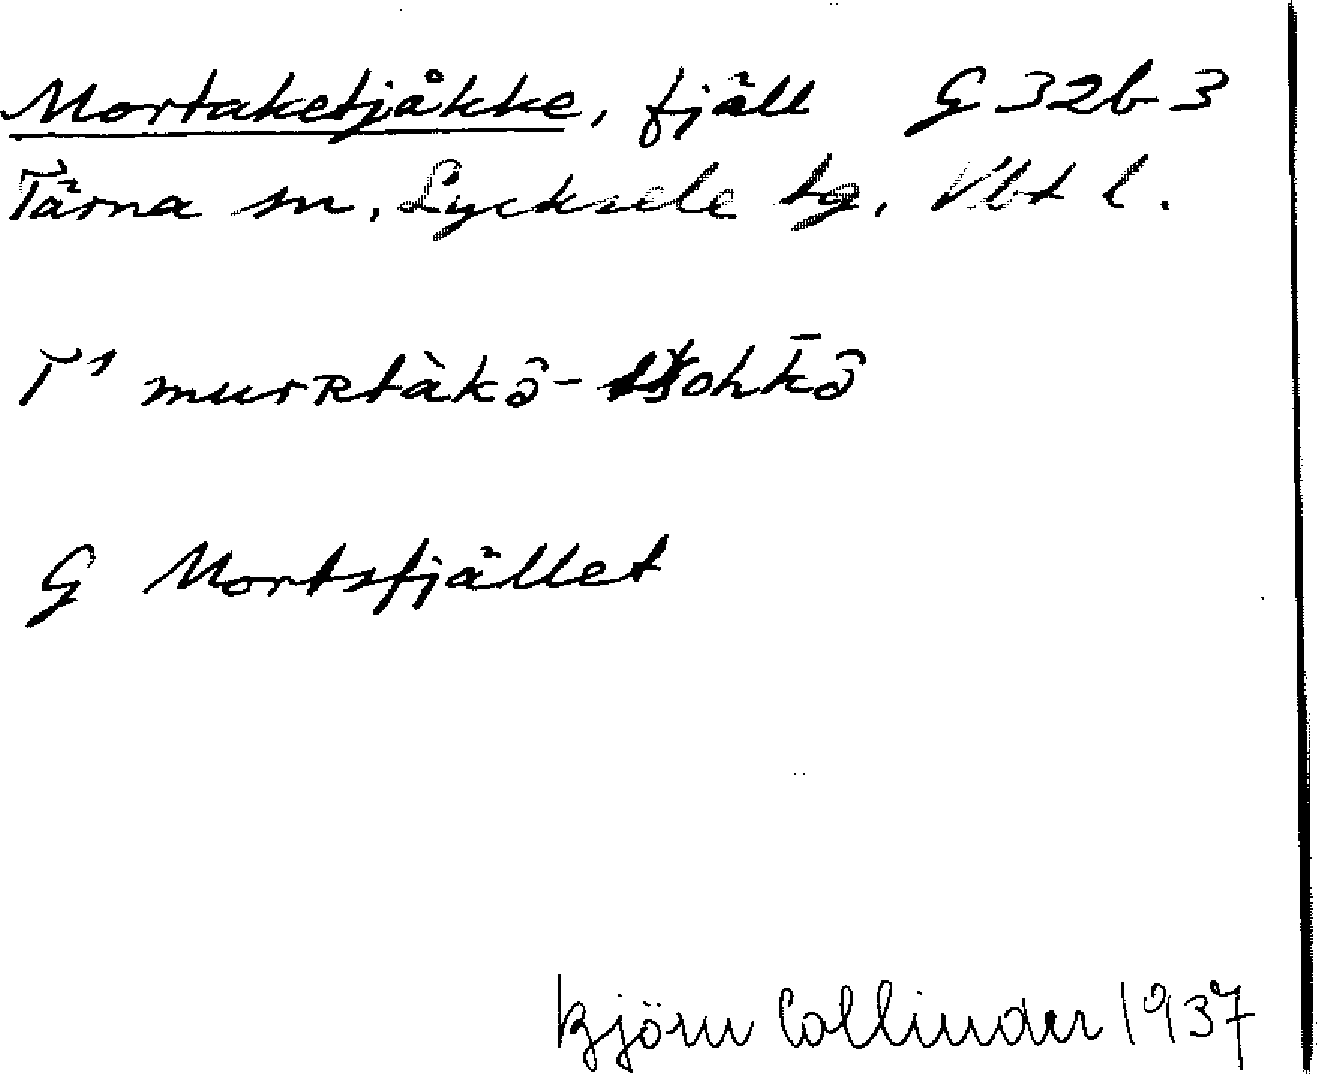 Mortaketjåkke, fjäll G 32b 3
Tärna sn, Lycksele lg, Vbt l.
T¹ murʀtàkə̂-tšohk̄ə̂
G Mortsfjället
Björn Collinder 1937